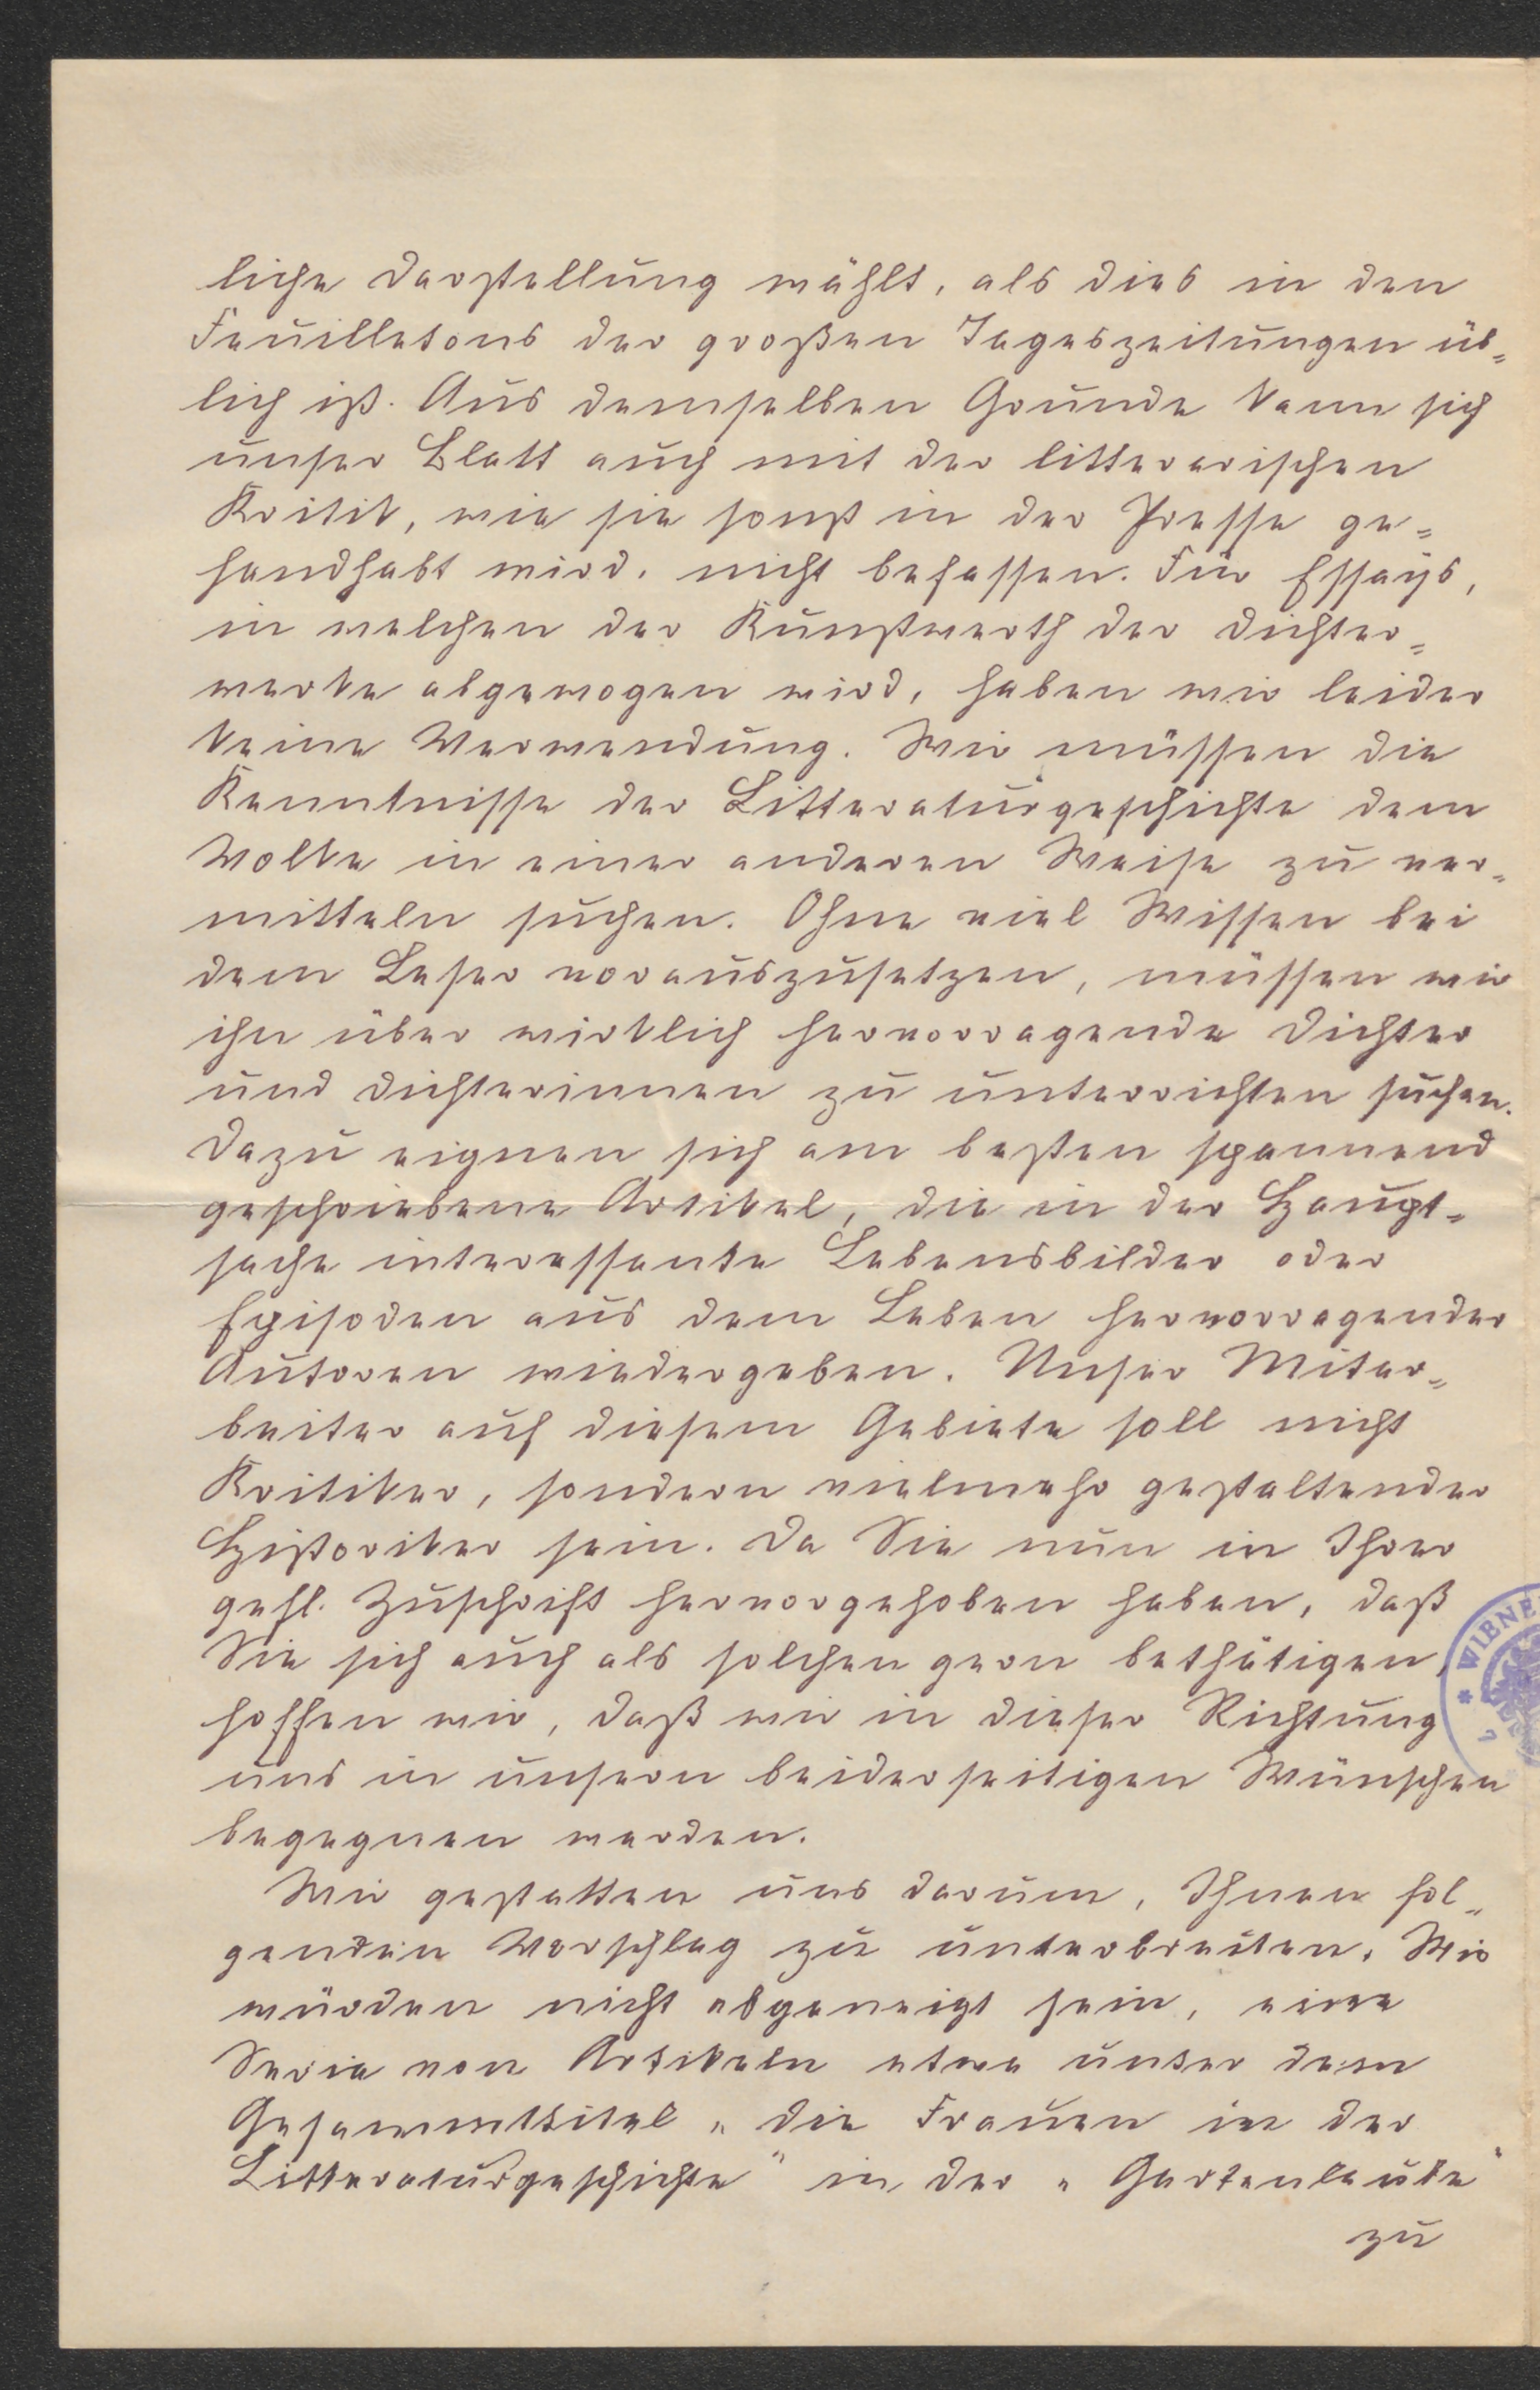 liche Darstellung wählt, als dies in den
Feuilletons der großen Tageszeitungen üb=
lich ist. Aus demselben Grunde kann sich
unser Blatt auch mit der litterarischen
Kritik, wie sie sonst in der Presse ge=
handhabt wird, nicht befassen. Für Essays,
in welchen der Kunstwerth der Dichter=
werke abgewogen wird, haben wir leider
keine Verwendung. Wir müssen die
Kenntnisse der Litteraturgeschichte dem
Volke in einer anderen Weise zu ver=
mitteln suchen. Ohne viel Wissen bei
dem Leser vorauszusetzen, müssen wir
ihn über wirklich hervorragende Dichter
und Dichterinnen zu unterrichten suchen.
Dazu eignen sich am besten spannend
geschriebene Artikel, die in der Haupt=
sache interessante Lebensbilder oder
Episoden aus dem Leben hervorragender
Autoren wiedergeben. Unser Mitar=
beiter auf diesem Gebiete soll nicht
Kritiker, sondern vielmehr gestaltender
Historiker sein. Da Sie nun in Ihrer
gefl. Zuschrift hervorgehoben haben, daß
Sie sich auch als solchen gern bethätigen,
hoffen wir, daß wir in dieser Richtung
uns in unsern beiderseitigen Wünschen
begegnen werden.
Wir gestatten uns darum, Ihnen fol=
genden Vorschlag zu unterbreiten. Wir
würden nicht abgeneigt sein, eine
Serie von Artikeln etwa unter dem
Gesammttitel „Die Frauen in der
Litteraturgeschichte" in der „Gartenlaube"
zu
* WIENE